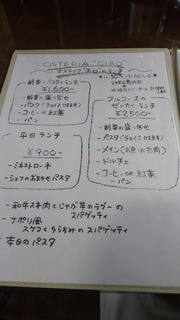 OSTERIA "GIRO"
前菜とパスタのランチ
¥1,600-
- 前菜の盛り合せ
- パスタ
- コーヒー or 紅茶
- パン
フルコースの
ぜいたくランチ
¥2,500-
- 前菜の盛り合せ
- パスタ
- メイン(お魚 or お肉)
- ドルチェ
- コーヒー or 紅茶
- パン
平日ランチ
¥900-
- ミネストローネ
- シェフのおまかせパスタ
- 和牛スネ肉とじゃが芋のラグーの
スパゲッティ
- ナポリ風
スパゲッティ
- 本日のパスタ